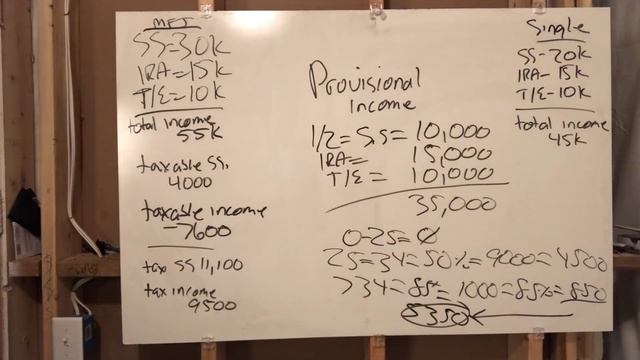 MFJ
SS=30K
IRA=15K
T/E=10K
total income
55K
taxable SS.
4000
taxable income
-7600
tax SS 11,100
tax income
9500
Provisional
Income
1/2=S.S=10,000
IRA= 15,000
T/E= 10,000
35,000
0-25=0
25=34=50%=9000=4500
>34=85%=1000=85%=850
5350
Single
SS-20K
IRA-15K
T/E-10K
total income
45K